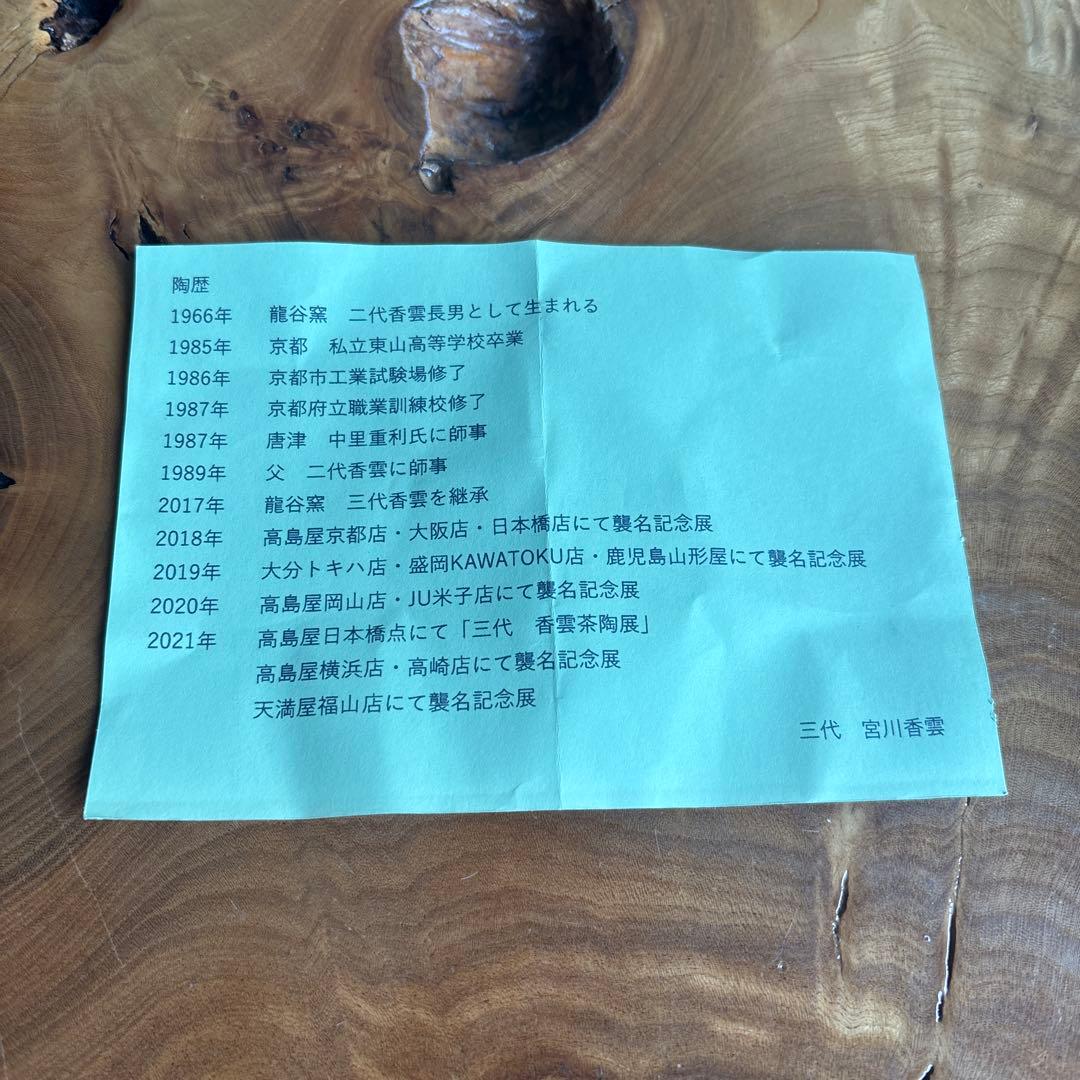 陶歴
1966年 龍谷窯 二代香雲長男として生まれる
1985年 京都 私立東山高等学校卒業
1986年 京都市工業試験場修了
1987年 京都府立職業訓練校修了
1987年 唐津 中里重利氏に師事
1989年 父 二代香雲に師事
2017年 龍谷窯 三代香雲を継承
2018年 高島屋京都店・大阪店・日本橋店にて襲名記念展
2019年 大分トキハ店・盛岡KAWATOKU店・鹿児島山形屋にて襲名記念展
2020年 高島屋岡山店・JU米子店にて襲名記念展
2021年 高島屋日本橋点にて「三代 香雲茶陶展」
高島屋横浜店・高崎店にて襲名記念展
天満屋福山店にて襲名記念展
三代 宮川香雲